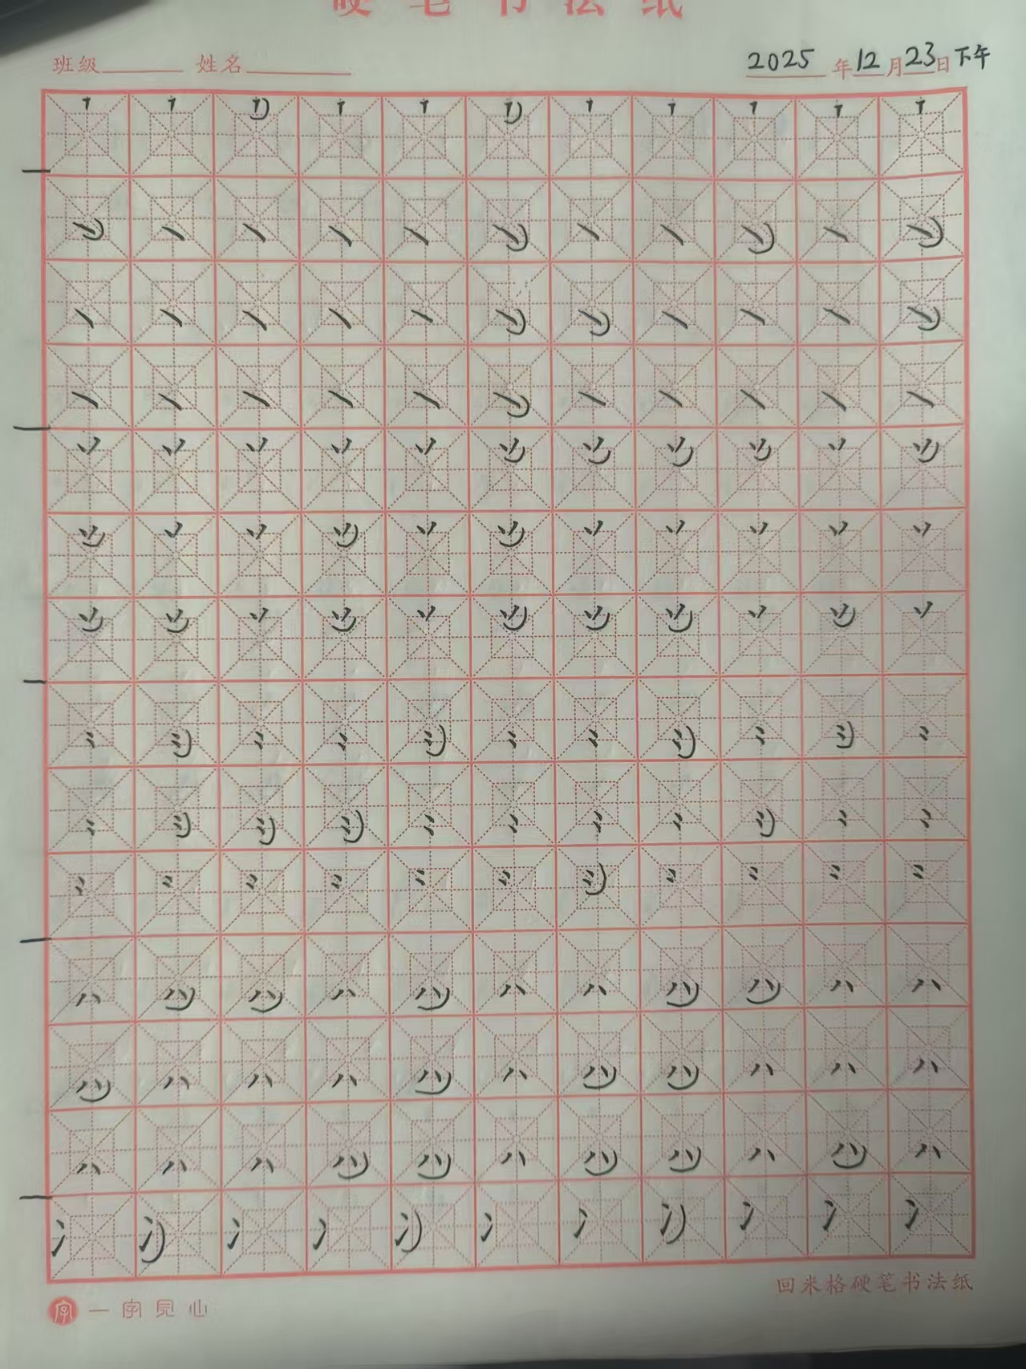 硬笔书法纸
班级 姓名 2025年12月23日下午
回米格硬笔书法纸
字 一字见心